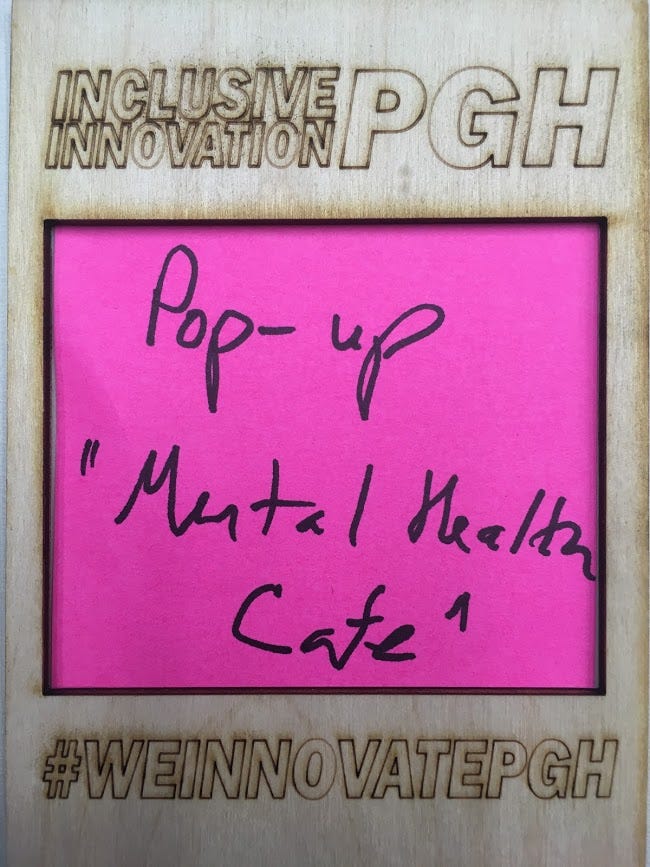 INCLUSIVE
INNOVATION PGH
Pop-up
"Mental Health
Cafe"
#WEINNOVATEPGH